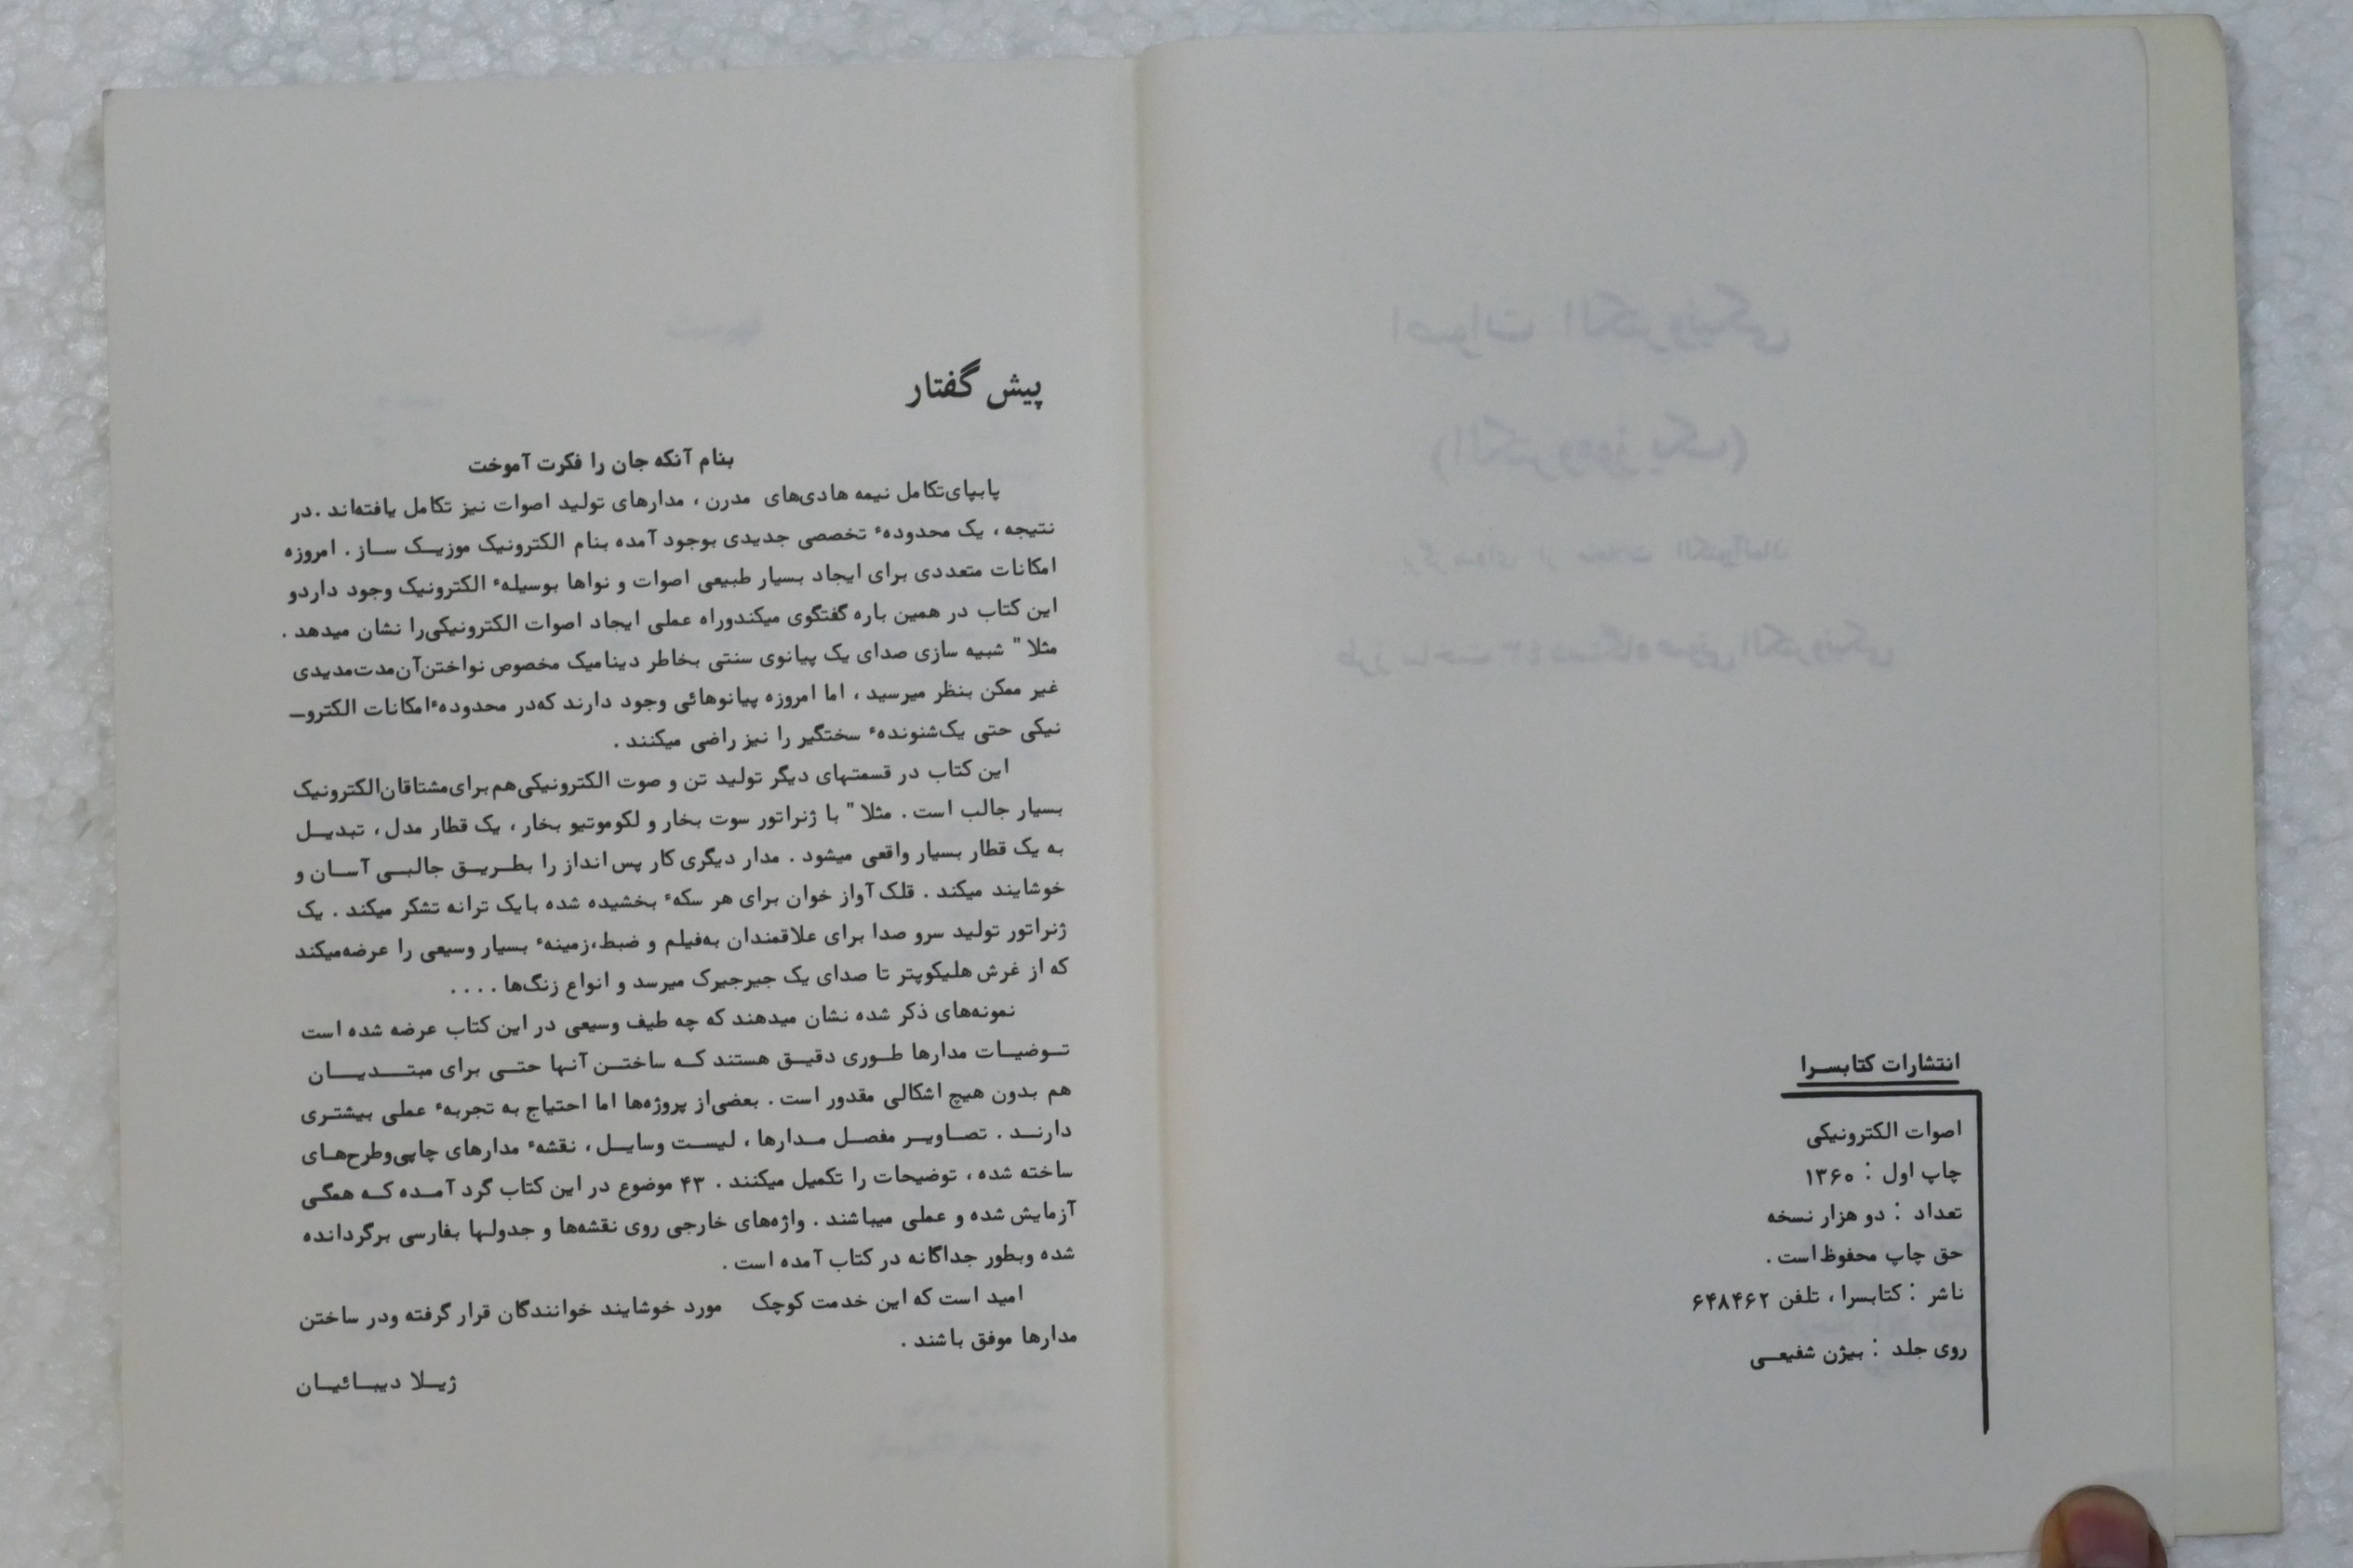 انتشارات کتابسرا
اصوات الکترونیکی
چاپ اول : ۱۳۶۰
تعداد : دو هزار نسخه
حق چاپ محفوظ است .
ناشر : کتابسرا ، تلفن ۶۴۸۴۶۲
روی جلد : بیژن شفیعی
پیش گفتار
بنام آنکه جان را فکرت آموخت
پابپای‌تکامل نیمه هادی‌های مدرن ، مدارهای تولید اصوات نیز تکامل یافته‌اند . در
نتیجه ، یک محدودهٔ تخصصی جدیدی بوجود آمده بنام الکترونیک موزیک ساز . امروزه
امکانات متعددی برای ایجاد بسیار طبیعی اصوات و نواها بوسیلهٔ الکترونیک وجود داردو
این کتاب در همین باره گفتگوی میکندوراه عملی ایجاد اصوات الکترونیکی‌را نشان میدهد .
مثلا " شبیه سازی صدای یک پیانوی سنتی بخاطر دینامیک مخصوص نواختن‌آن‌مدت‌مدیدی
غیر ممکن بنظر میرسید ، اما امروزه پیانوهائی وجود دارند که‌در محدودهٔ امکانات الکترو-
نیکی حتی یک‌شنوندهٔ سختگیر را نیز راضی میکنند .
این کتاب در قسمتهای دیگر تولید تن و صوت الکترونیکی‌هم‌برای‌مشتاقان‌الکترونیک
بسیار جالب است . مثلا " با ژنراتور سوت بخار و لکوموتیو بخار ، یک قطار مدل ، تبدیل
به یک قطار بسیار واقعی میشود . مدار دیگری کار پس‌انداز را بطریق جالبی آسان و
خوشایند میکند . قلک آواز خوان برای هر سکهٔ بخشیده شده بایک ترانه تشکر میکند . یک
ژنراتور تولید سرو صدا برای علاقمندان به‌فیلم و ضبط،زمینهٔ بسیار وسیعی را عرضه‌میکند
که از غرش هلیکوپتر تا صدای یک جیرجیرک میرسد و انواع زنگ‌ها ....
نمونه‌های ذکر شده نشان میدهند که چه طیف وسیعی در این کتاب عرضه شده است
توضیات مدارها طوری دقیق هستند که ساختن آنها حتی برای مبتدیان
هم بدون هیچ اشکالی مقدور است . بعضی‌از پروژه‌ها اما احتیاج به تجربهٔ عملی بیشتری
دارند . تصاویر مفصل مدارها ، لیست وسایل ، نقشهٔ مدارهای چاپی‌وطرح‌های
ساخته شده ، توضیحات را تکمیل میکنند . ۴۳ موضوع در این کتاب گرد آمده که همگی
آزمایش شده و عملی میباشند . واژه‌های خارجی روی نقشه‌ها و جدولها بفارسی برگردانده
شده وبطور جداگانه در کتاب آمده است .
امید است که این خدمت کوچک مورد خوشایند خوانندگان قرار گرفته ودر ساختن
مدارها موفق باشند .
ژیلا دیبائیان